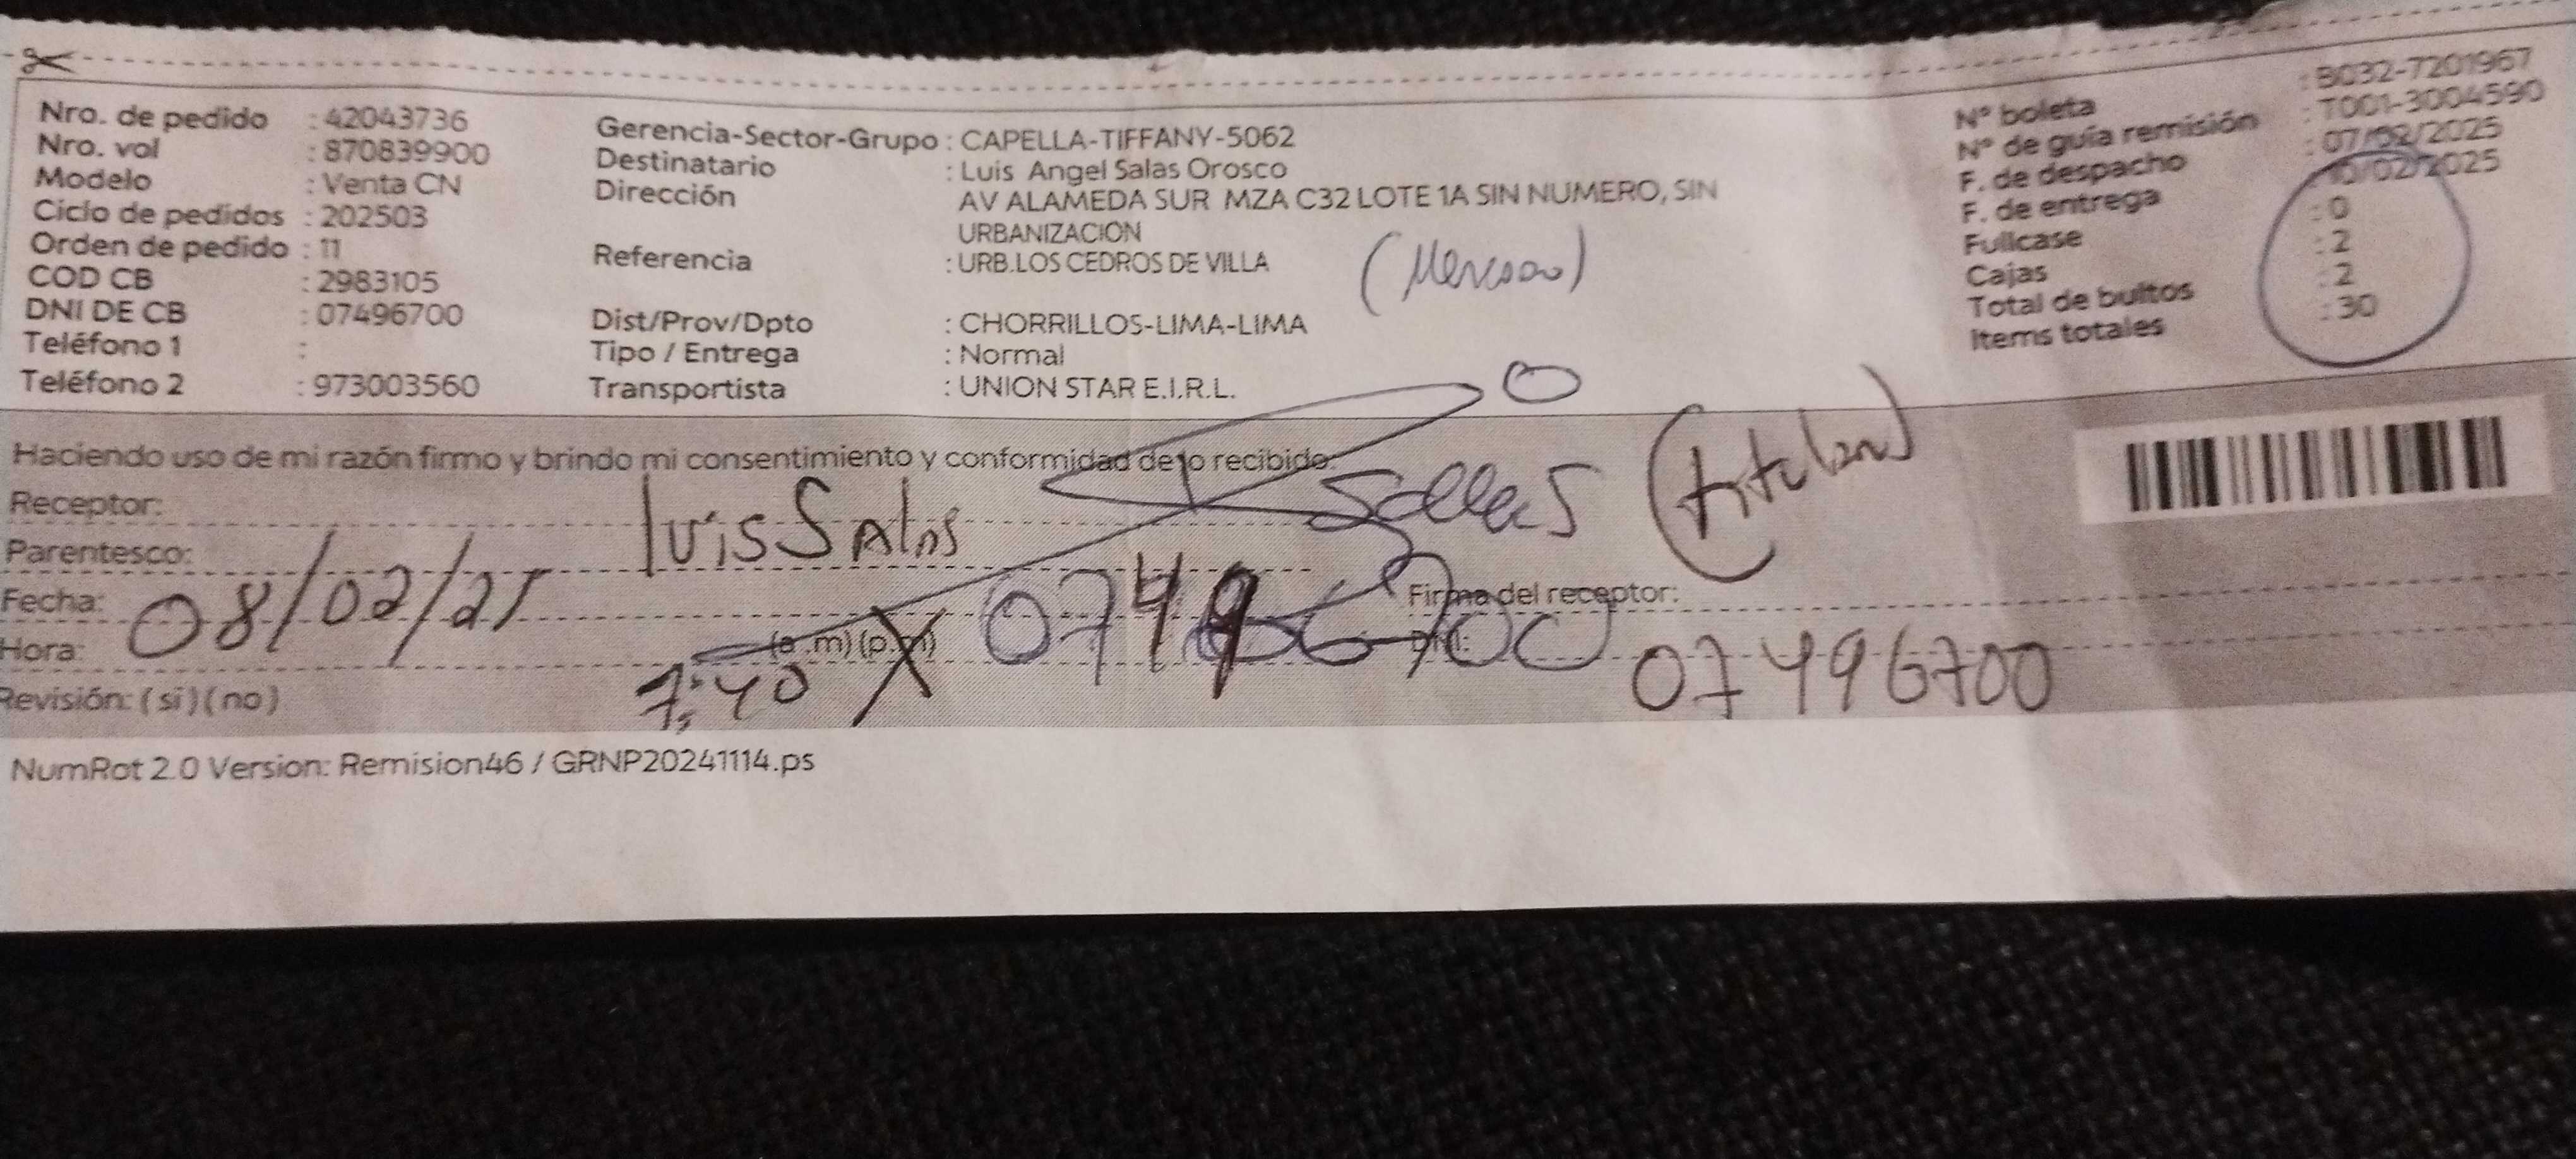 Nro. de pedido : 42043736
Nro. vol : 870839900
Modelo : Venta CN
Ciclo de pedidos : 202503
Orden de pedido : 11
COD CB : 2983105
DNI DE CB : 07496700
Teléfono 1 :
Teléfono 2 : 973003560
Gerencia-Sector-Grupo : CAPELLA-TIFFANY-5062
Destinatario : Luis Angel Salas Orosco
Dirección AV ALAMEDA SUR MZA C32 LOTE 1A SIN NUMERO, SIN
URBANIZACION
Referencia : URB.LOS CEDROS DE VILLA
(Mercado)
Dist/Prov/Dpto : CHORRILLOS-LIMA-LIMA
Tipo / Entrega : Normal
Transportista : UNION STAR E.I.R.L.
N° boleta : B032-7201967
N° de guía remisión : T001-3004590
F. de despacho : 07/02/2025
F. de entrega : 10/02/2025
Fullcase : 0
Cajas : 2
Total de bultos : 2
Items totales : 30
Haciendo uso de mi razón firmo y brindo mi consentimiento y conformidad de lo recibido:
Receptor: luis SAlas
Salas (titular)
Parentesco:
Fecha: 08/02/25
Firma del receptor:
Hora: 7:40 (a .m) (p.m)
07496700
DNI: 07496700
Revisión: (si) (no)
NumRot 2.0 Version: Remision46 / GRNP20241114.ps